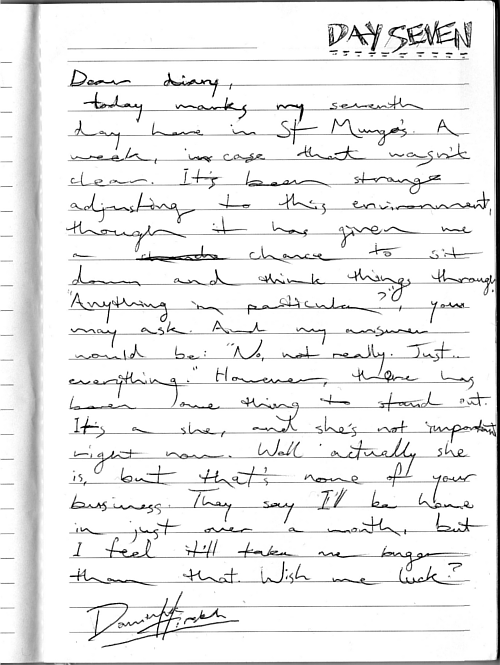 DAY SEVEN
Dear diary,
today marks my seventh
day here in St Mungo's. A
week, in case that wasn't
clear. It's been strange
adjusting to this environment,
though it has given me
a chance to sit
down and think things through.
"Anything in particular?", you
may ask. And my answer
would be: "No, not really. Just..
everything." However, there has
been one thing to stand out.
It's a she, and she's not important
right now. Well actually she
is, but that's none of your
business. They say I'll be home
in just over a month, but
I feel it'll take me longer
than that. Wish me luck?